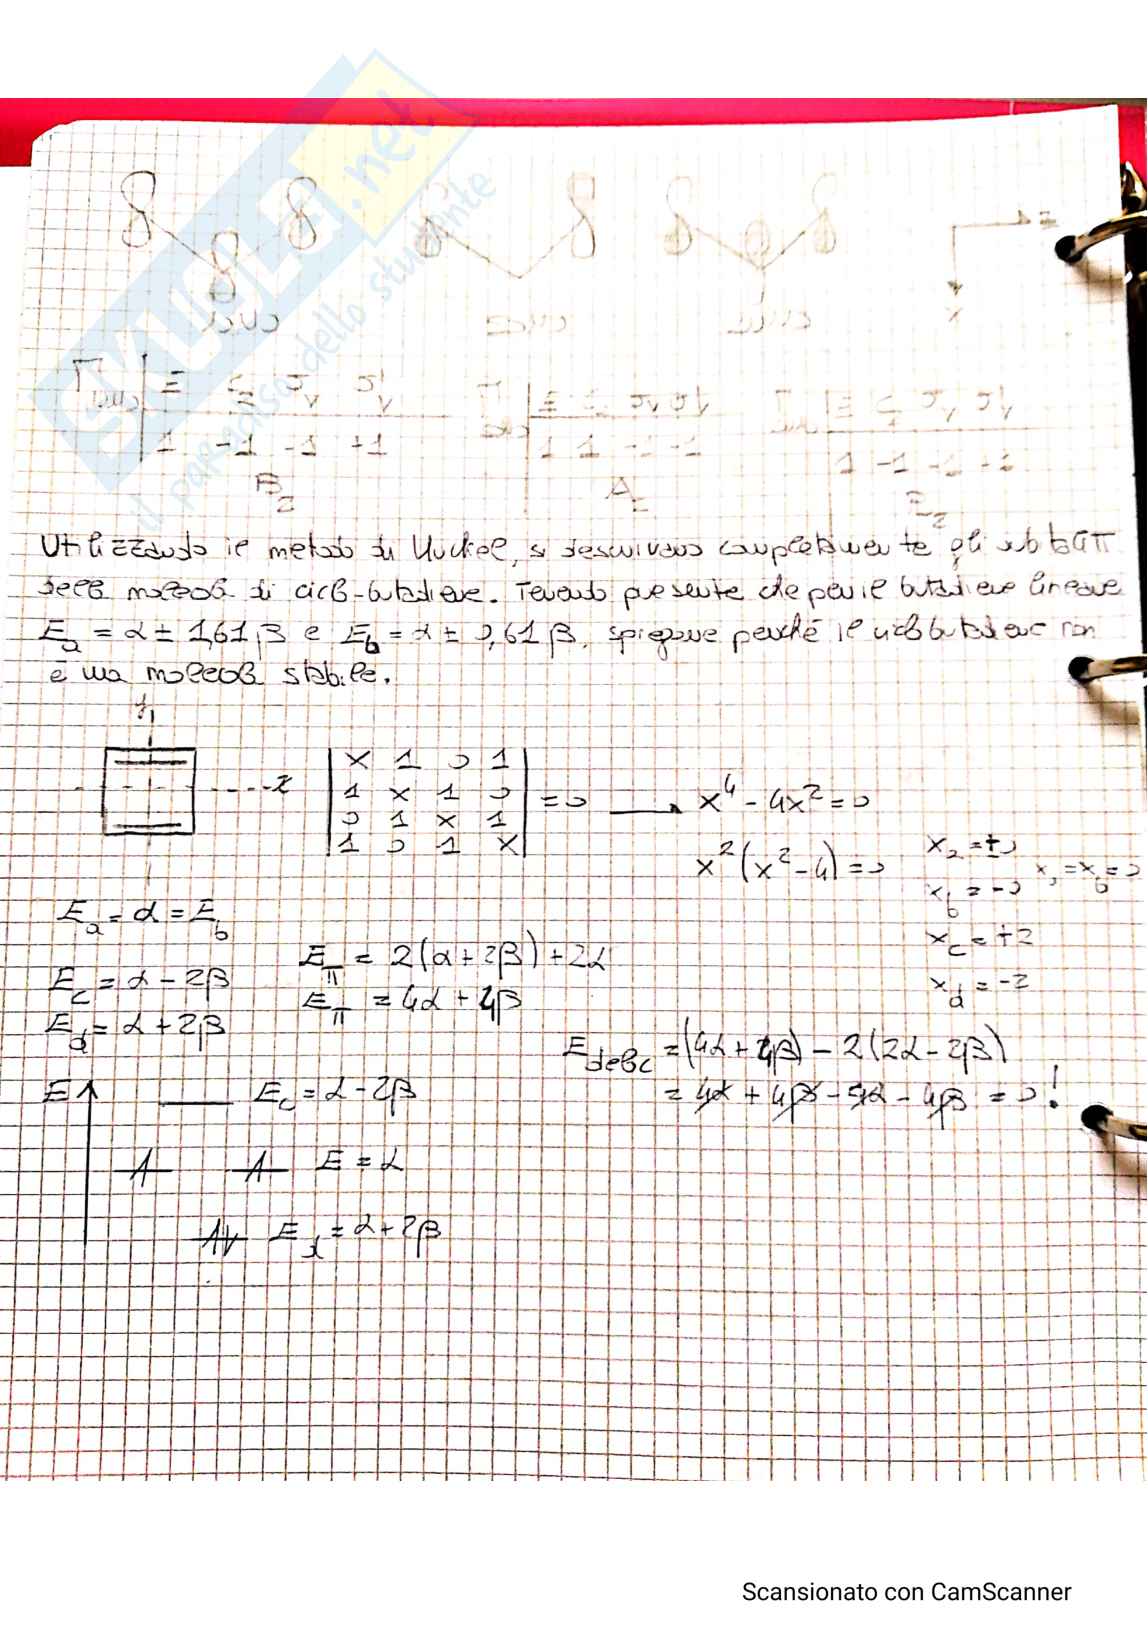 SKUOLA.net
il paradiso dello studente
E
x
Γ E C₂ σv σv'
1 -1 -1 +1
B₂
E C₂ σv σv'
1 1 -1 -1
A₂
E C₂ σv σv'
1 -1 -1 +1
B₂
Utilizzando il metodo di Huckel, si descrivano completamente gli orbitali π
della molecola di ciclo-butadiene. Tenendo presente che per il butadiene lineare
Ea = α ± 1,61β e Eb = α ± 0,61β, spiegare perché il ciclobutadiene non
è una molecola stabile.
x 1 0 1
1 x 1 0
0 1 x 1
1 0 1 x
= 0 → x⁴ - 4x² = 0
x²(x² - 4) = 0
xa = ±0
xb = -0
xa = xb = 0
xc = +2
xd = -2
Ea = α = Eb
Ec = α - 2β
Ed = α + 2β
Eπ = 2(α + 2β) + 2α
Eπ = 4α + 4β
Edeloc = (4α + 4β) - 2(2α - 2β)
= 4α + 4β - 4α - 4β = 0!
E
Ec = α - 2β
E = α
Ed = α + 2β
Scansionato con CamScanner